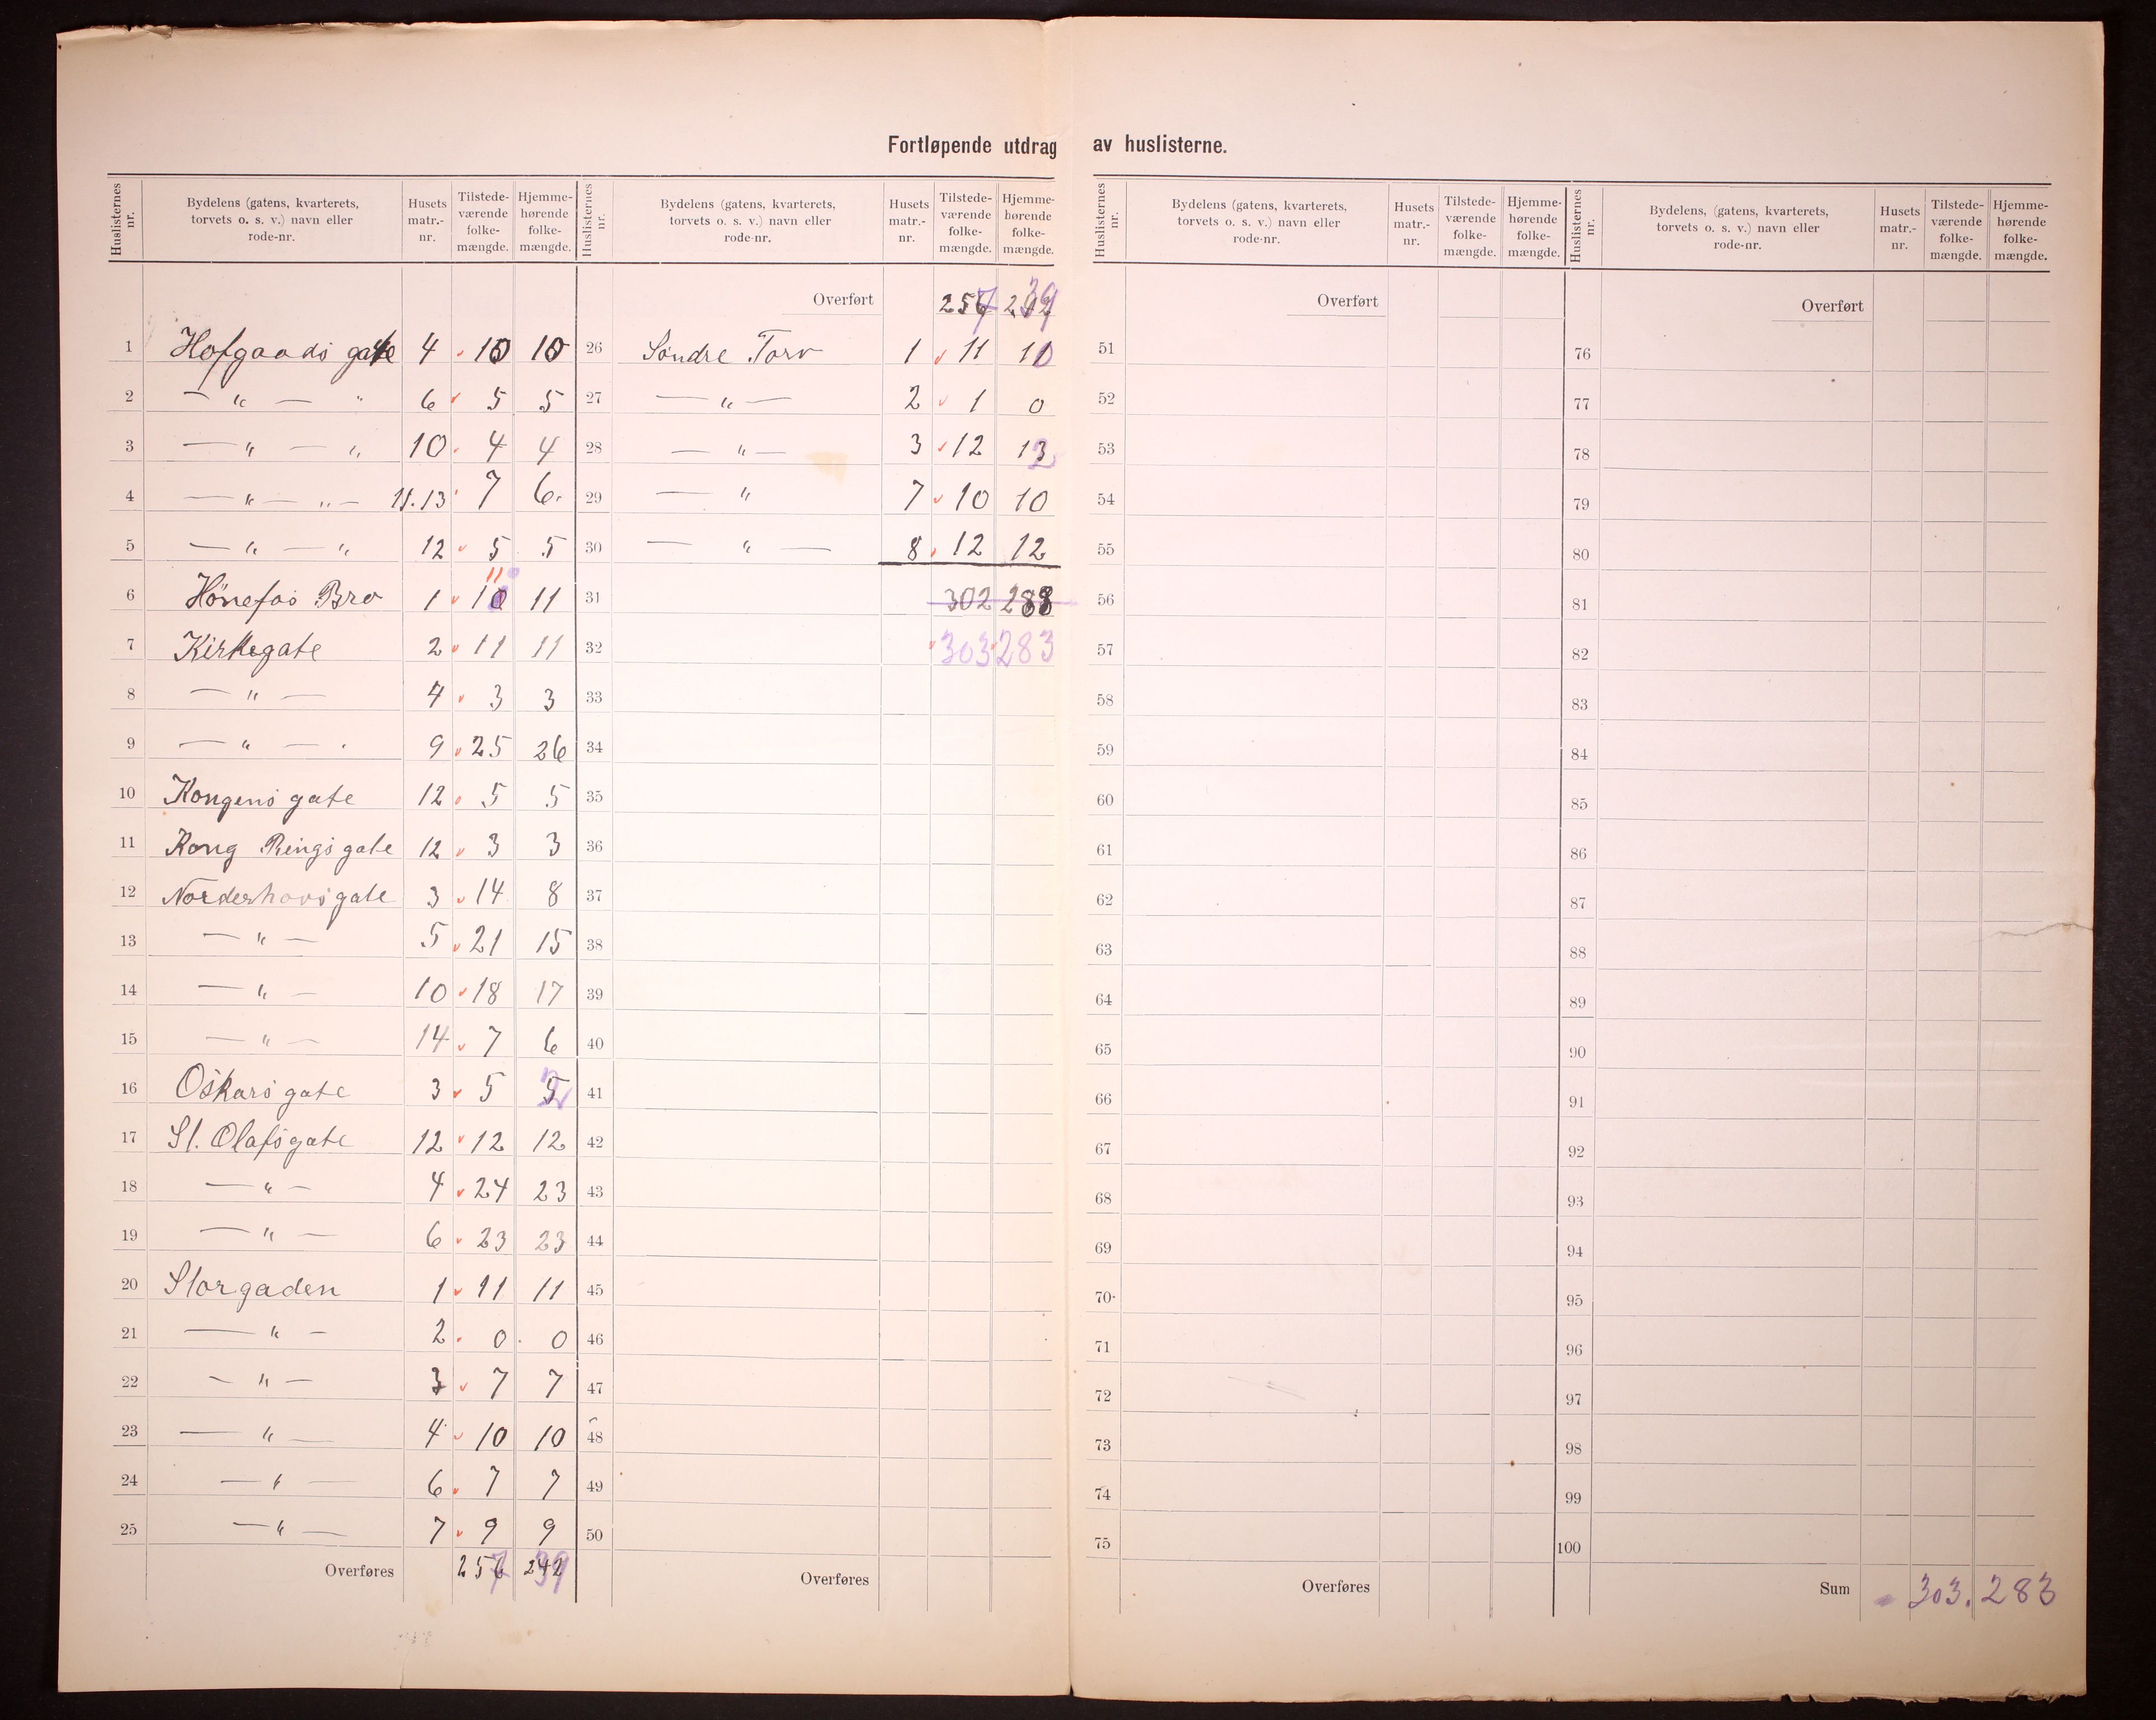 Fortløpende utdrag av huslisterne.
Huslisternes nr. | Bydelens (gatens, kvarterets, torvets o. s. v.) navn eller rode-nr. | Husets matr.-nr. | Tilstede-værende folke-mængde. | Hjemme-hørende folke-mængde.
1 Hofgaards gate 4 10 10
2 — " — " 6 5 5
3 — " — " 10 4 4
4 — " — " — 11.13 7 6
5 — " — " 12 5 5
6 Hønefos Bro 1 10 11 11
7 Kirkegate 2 11 11
8 — " — 4 3 3
9 — " — 9 25 26
10 Kongens gate 12 5 5
11 Kong Rings gate 12 3 3
12 Norderhovs gate 3 14 8
13 — " — 5 21 15
14 — " — 10 18 17
15 — " — 14 7 6
16 Oskars gate 3 5 5 2
17 St. Olafs gate 12 12 12
18 — " — 4 24 23
19 — " — 6 23 23
20 Storgaden 1 11 11
21 — " — 2 0 0
22 — " — 3 7 7
23 — " — 4 10 10
24 — " — 6 7 7
25 — " — 7 9 9
Overføres 256 7 242 39
Huslisternes nr. | Bydelens (gatens, kvarterets, torvets o. s. v.) navn eller rode-nr. | Husets matr.-nr. | Tilstede-værende folke-mængde. | Hjemme-hørende folke-mængde.
Overført 256 7 242 39
26 Søndre Torv 1 11 10
27 — " — 2 1 0
28 — " — 3 12 13 2
29 — " 7 10 10
30 — " — 8 12 12
31 302 288
32 303 283
33
34
35
36
37
38
39
40
41
42
43
44
45
46
47
48
49
50
Overføres
Huslisternes nr. | Bydelens (gatens, kvarterets, torvets o. s. v.) navn eller rode-nr. | Husets matr.-nr. | Tilstede-værende folke-mængde. | Hjemme-hørende folke-mængde.
Overført
51
52
53
54
55
56
57
58
59
60
61
62
63
64
65
66
67
68
69
70
71
72
73
74
75
Overføres
Huslisternes nr. | Bydelens, (gatens, kvarterets, torvets o. s. v.) navn eller rode-nr. | Husets matr.-nr. | Tilstede-værende folke-mængde. | Hjemme-hørende folke-mængde.
Overført
76
77
78
79
80
81
82
83
84
85
86
87
88
89
90
91
92
93
94
95
96
97
98
99
100
Sum 303. 283